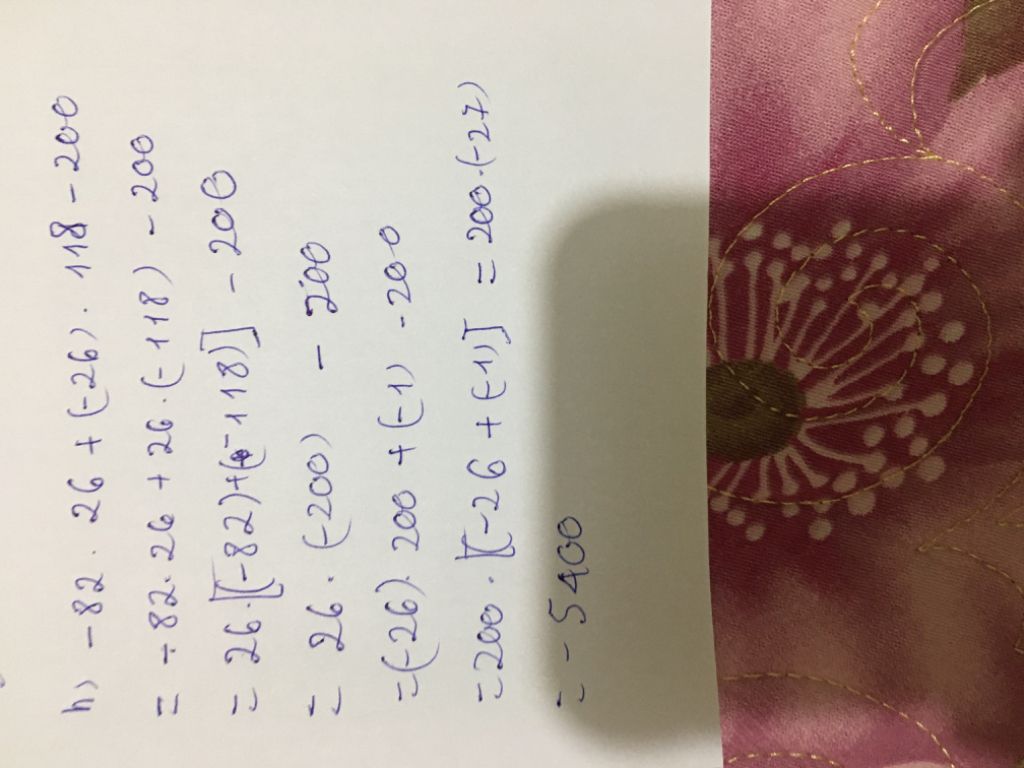 h) -82 . 26 + (-26) . 118 - 200
= -82.26 + 26.(-118) - 200
= 26.[(-82)+(-118)] - 200
= 26 . (-200) - 200
=(-26). 200 + (-1) .200
=200 . [(-26 + (-1)] = 200.(-27)
= - 5400